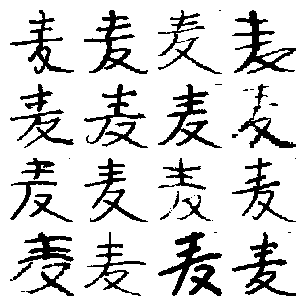 麦麦麦麦
麦麦麦麦
麦麦麦麦
麦麦麦麦